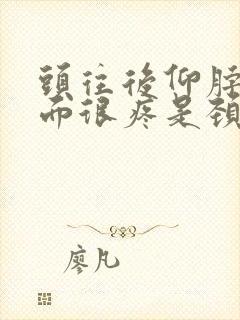 頭往後仰脖
而很疼是頸
廖凡